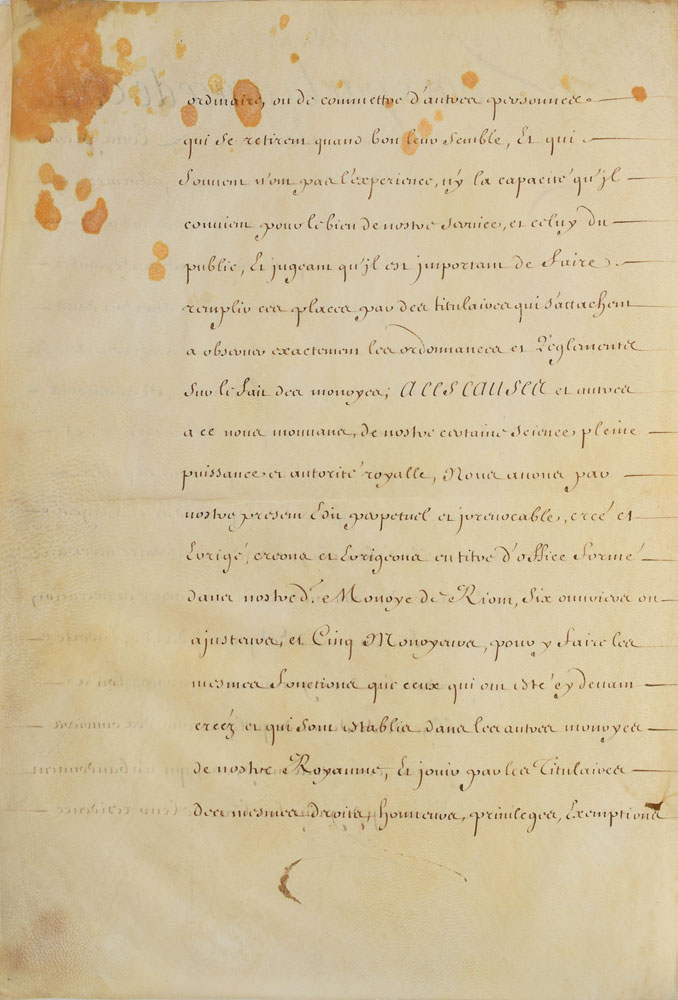 ordinaire, ou de commettre d'autres personnes
qui se retirent quand bon leur semble, Et qui
souvent n'ont pas l'experience, n'y la capacité qu'jl
convient pour le bien de nostre service, et celuy du
public, Et jugeant qu'jl est jmportant de faire
remplir ces places par des titulaires qui s'attachent
a observer exactement les ordonnances et Reglements
sur le fait des monoyes; A CES CAUSES et autres
a ce nous mouvans, de nostre certaine science, pleine
puissance et autorité royalle, Nous avons par
nostre present Edit perpetuel et jrrevocable, creé et
Erigé, creons et Erigeons en titre d'office formé
dans nostre d.e Monoye de Riom, six ouvriers ou
ajusteurs, et Cinq Monoyeurs, pour y faire les
mesmes fonctions que ceux qui ont esté cy devant
creéz et qui sont establis dans les autres monoyes
de nostre Royaume, Et jouir par les Titulaires
des mesmes droits, honneurs, privileges, Exemptions